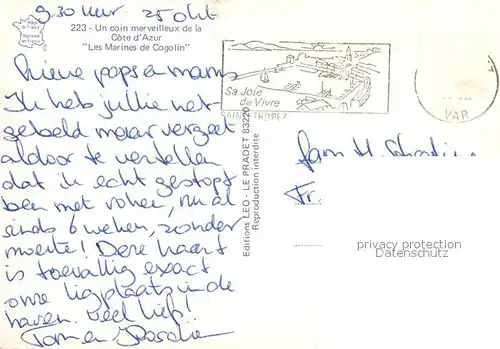 9.30 uur 25 okt
223 - Un coin merveilleux de la
Côte d'Azur
"Les Marines de Cogolin"
Lieve paps en mams
Ik heb jullie net
gebeld maar vergeet
aldoor te vertellen
dat ik echt gestopt
ben met roken, nu al
sinds 6 weken, zonder
moeite! Deze kaart
is toevallig exact
onze ligplaats in de
haven. Veel liefs!
Tom en
Sa Joie
de Vivre
SAINT TROPEZ
VAR
Editions LEO - LE PRADET 83220
Reproduction interdite
Fam H.
Fr.
privacy protection
Datenschutz